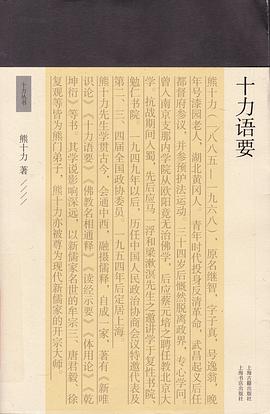 十力语要
熊十力（一八八五—一九六八），原名继智，字子真，号逸翁，晚
年号漆园老人，湖北黄冈人。青年时代投身反清革命，武昌起义后任
都督府参议，并参预护法运动。三十四岁后慨然脱离政界，专心学问，
曾入南京支那内学院从欧阳竟无治佛学，后应蔡元培之聘任教北京大
学。抗战期间入蜀，先后应马一浮和梁漱溟先生之邀讲学于复性书院、
勉仁书院。一九四九年以后，历任中国人民政治协商会议特邀代表及
第二、三、四届全国政协委员。一九五四年后定居上海。
熊十力先生学贯古今，会通中西，融摄儒释，自成一家，著有《新唯
识论》《十力语要》《佛教名相通释》《读经示要》《体用论》《乾
坤衍》等书。其学说影响深远，以新儒家名世的牟宗三、唐君毅、徐
复观等皆为熊门弟子，熊十力亦被尊为现代新儒家的开宗大师。
十力丛书
熊十力 著
上海古籍出版社
上海书店出版社